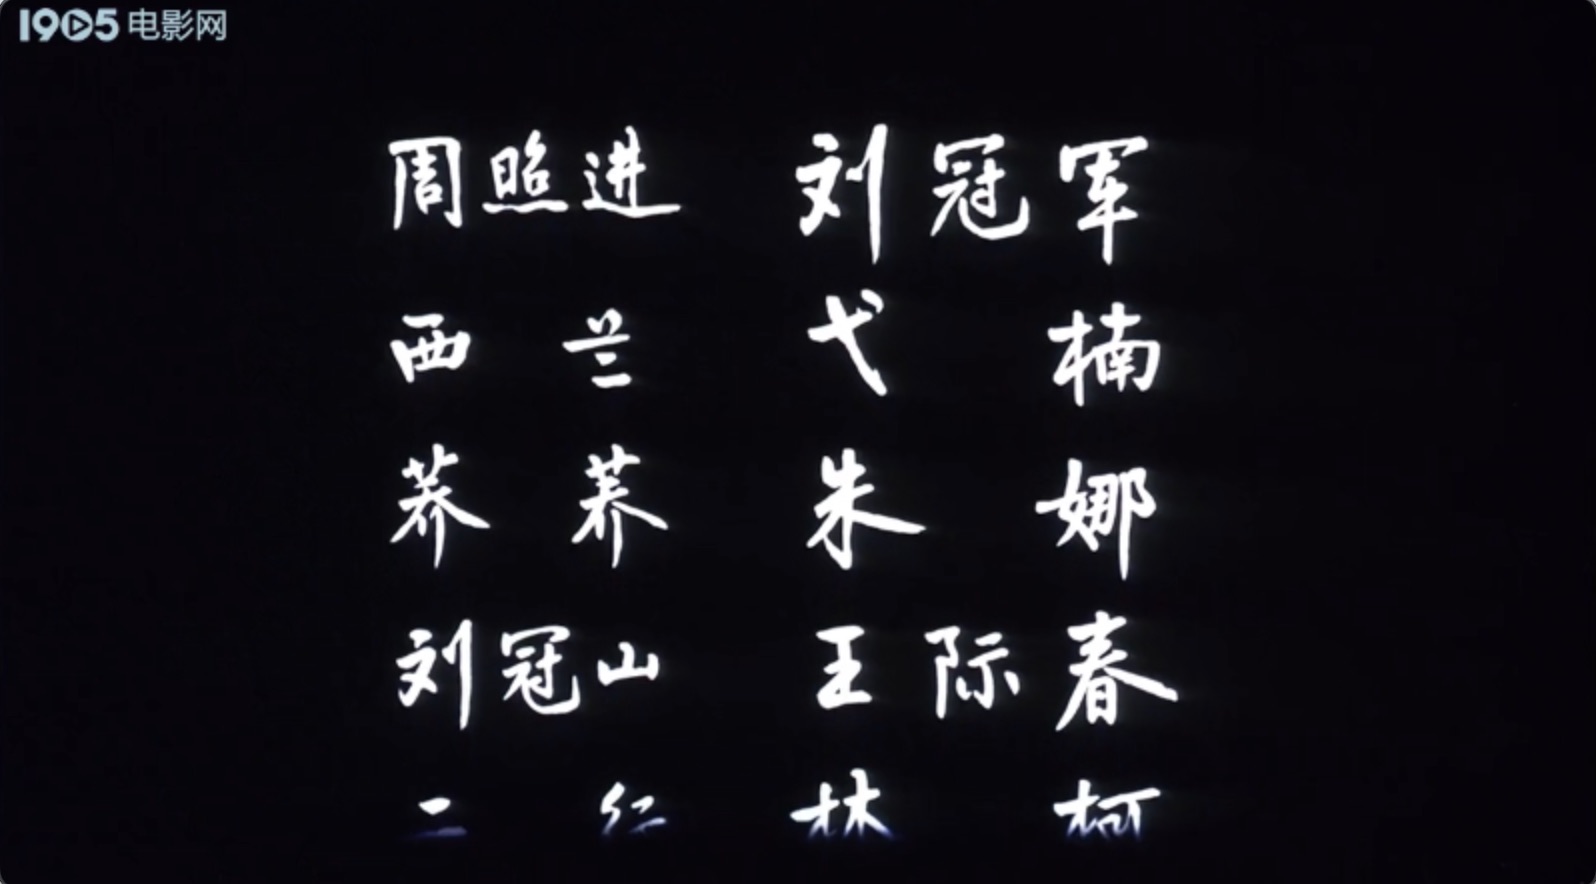 1905电影网
周照进 刘冠军
西兰 弋楠
荞荞 朱娜
刘冠山 王际春
林柯